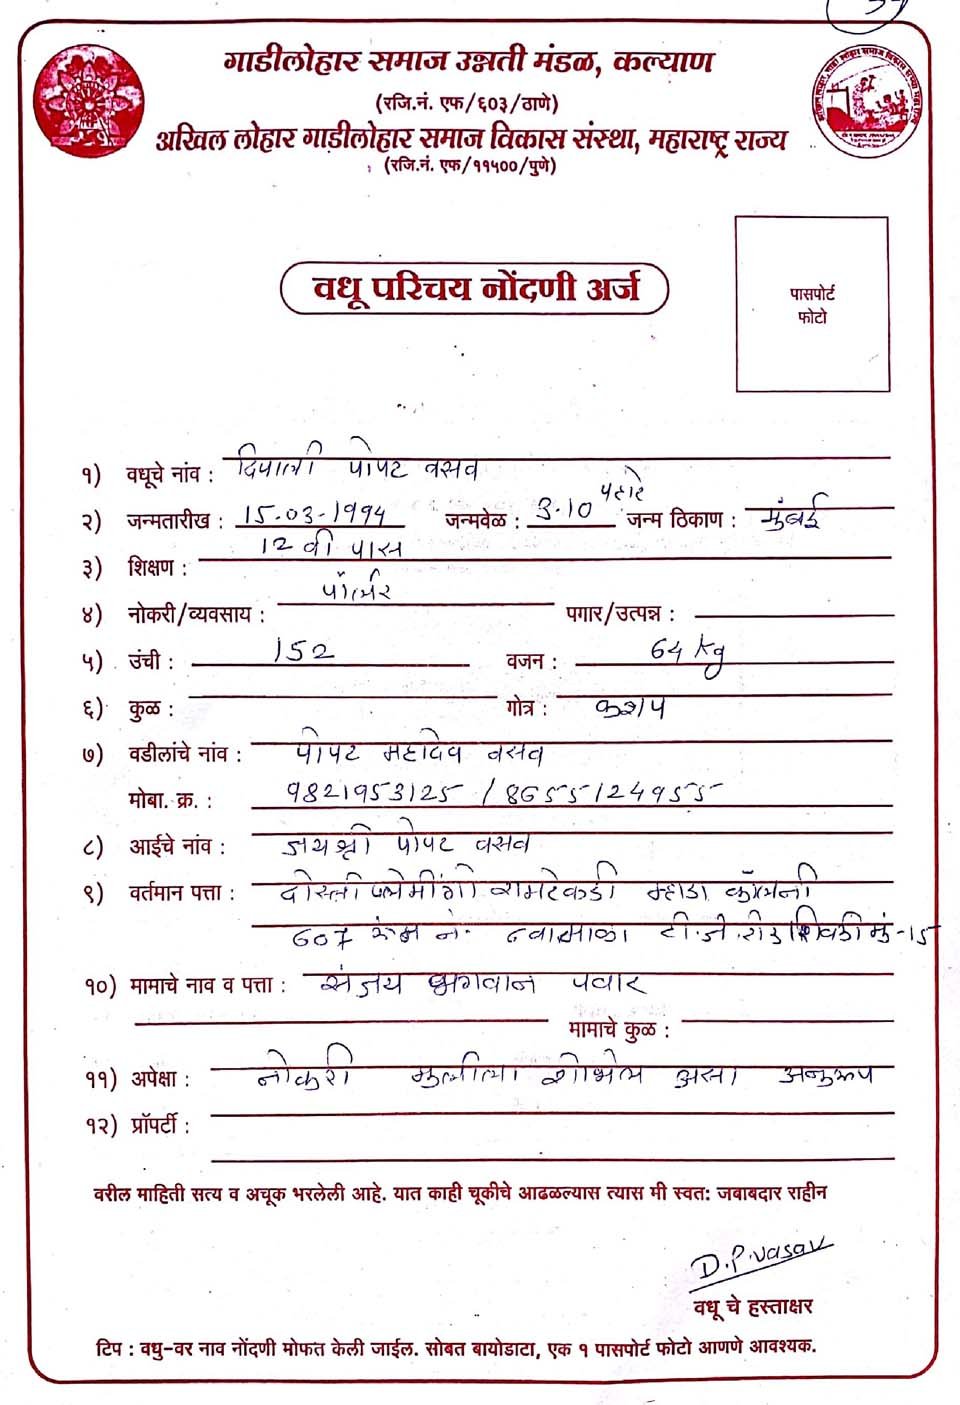 गाडीलोहार समाज उन्नती मंडळ, कल्याण
(रजि.नं. एफ/६०३/ठाणे)
अखिल लोहार गाडीलोहार समाज विकास संस्था, महाराष्ट्र राज्य
(रजि.नं. एफ/११५००/पुणे)
वधू परिचय नोंदणी अर्ज
पासपोर्ट
फोटो
१) वधूचे नांव : दिपाली पोपट वसव
२) जन्मतारीख : 15-03-1994 जन्मवेळ : 3.10 पहाटे जन्म ठिकाण : मुंबई
३) शिक्षण : 12 वी पास
४) नोकरी/व्यवसाय : पार्लर पगार/उत्पन्न :
५) उंची : 152 वजन : 64 kg
६) कुळ : गोत्र : कशप
७) वडीलांचे नांव : पोपट महादेव वसव
मोबा. क्र. : 9821953125 / 8655124955
८) आईचे नांव : जयश्री पोपट वसव
९) वर्तमान पत्ता : दोस्ती फ्लेमींगो म्हाडा कॉलनी
607 रूम नं. टी.जे. रोड शिवडी मुं-15
१०) मामाचे नाव व पत्ता : संजय भगवान पवार
मामाचे कुळ :
११) अपेक्षा : नोकरी मुलीला शोभेल असा अनुरूप
१२) प्रॉपर्टी :
वरील माहिती सत्य व अचूक भरलेली आहे. यात काही चूकीचे आढळल्यास त्यास मी स्वत: जबाबदार राहीन
D.P.Vasav
वधू चे हस्ताक्षर
टिप : वधु-वर नाव नोंदणी मोफत केली जाईल. सोबत बायोडाटा, एक १ पासपोर्ट फोटो आणणे आवश्यक.